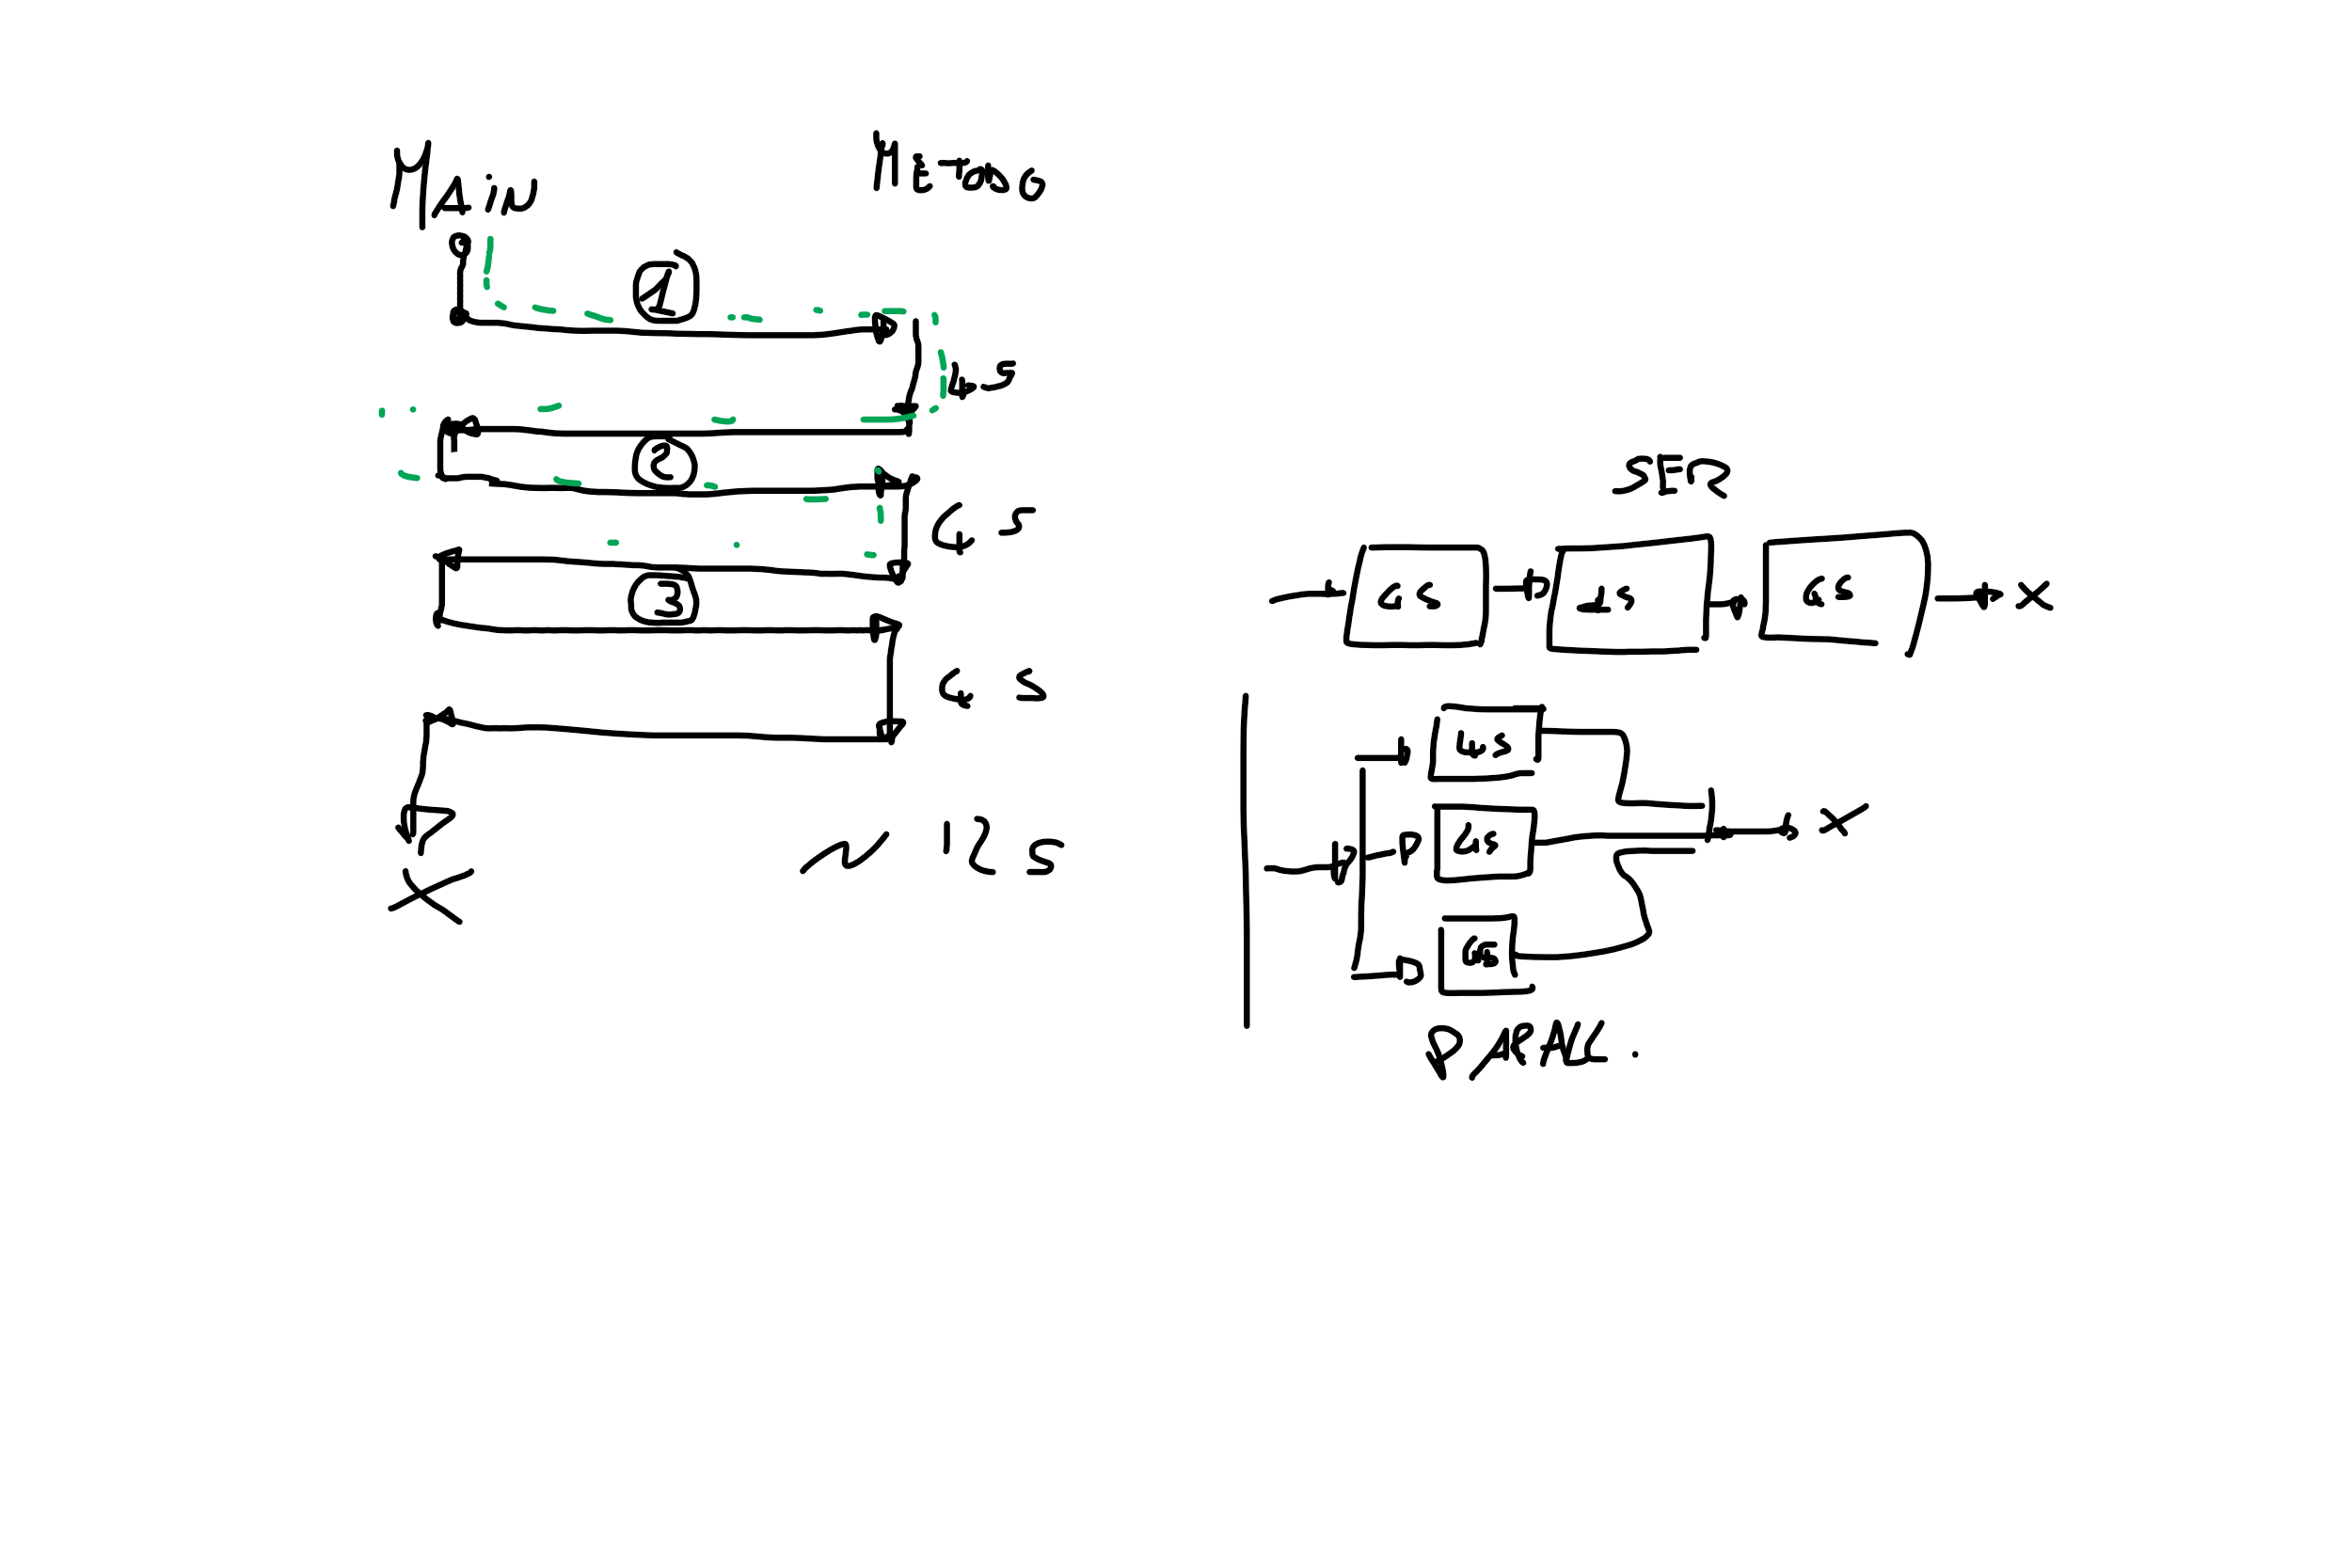 MAiN
METODO
1
4 s
2
4 s
3
4 s
~ 12 s
X
SER
4s
4s
4s
X
4s
4s
4s
X
PARAL.